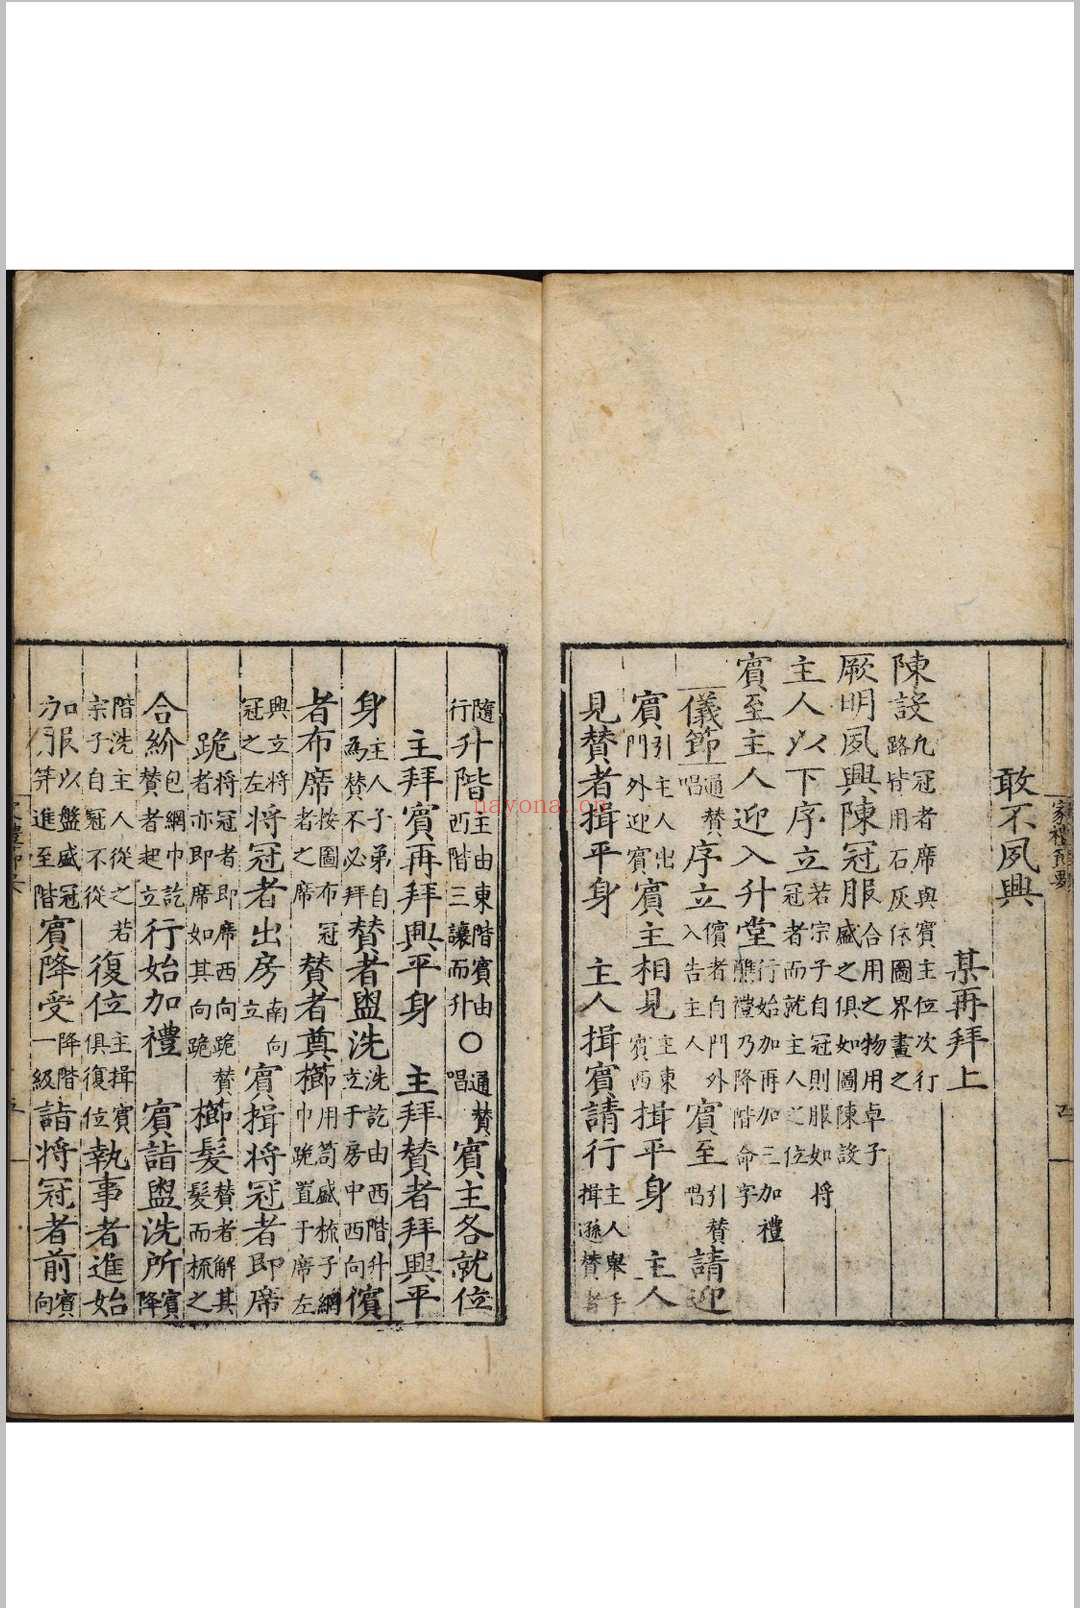 敢不夙興
某再拜上
陳設凡冠者席與賓主位次行路皆用石灰依圖界畫之
厥明夙興陳冠服合用之物用卓子盛之俱如圖陳設
主人以下序立若宗子自冠則服如將冠者而就主人之位
賓至主人迎入升堂行始加再加三加禮醮禮乃降階命字
儀節通贊唱序立儐者自門外入告主人賓至引贊唱請迎
賓引主人出門外迎賓賓主相見主東賓西揖平身 主人
見贊者揖平身 主人揖賓請行主人舉手揖遜贊者
隨行升階主由東階賓由西階三讓而升○通贊唱賓主各就位
主拜賓再拜興平身 主拜贊者拜興平
身主人子弟自為贊不必拜贊者盥洗洗訖由西階升立于房中西向儐
者布席按圖布冠者之席 贊者奠櫛用笥盛梳子網巾跪置于席左
興立將冠之左將冠者出房南向立 賓揖將冠者即席
跪將冠者即席西向跪贊者亦即席如其向跪櫛髮贊者解其髮而梳之
合紒包網巾訖贊者起立行始加禮 賓詣盥洗所賓降
階洗主人從之若宗子自冠不從復位主揖賓俱復位執事者進始
加服以盤盛冠笄進至階賓降受降階一級詣將冠者前賓向
家禮節要
navona.cn